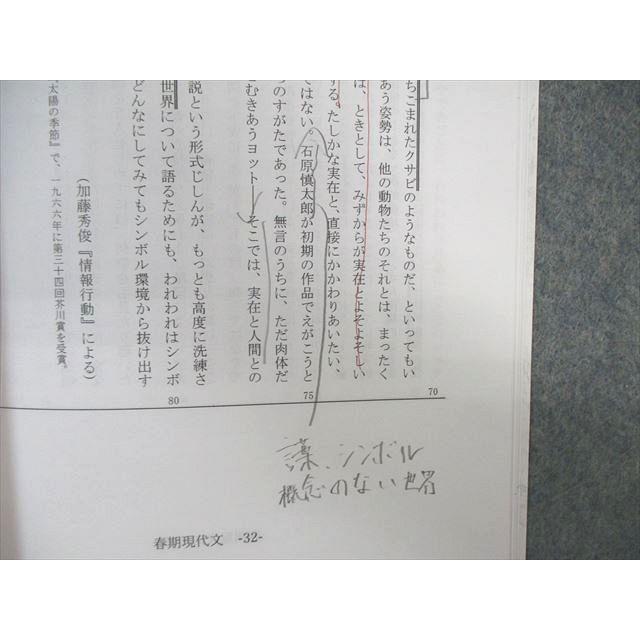 ちごまれたクサビのようなものだ、といってもい
あう姿勢は、他の動物たちのそれとは、まったく
は、ときとして、みずからが実在とよそよそしい
する。たしかな実在と、直接にかかわりあいたい、
ではない。石原慎太郎が初期の作品でえがこうと
ものすがたであった。無言のうちに、ただ肉体だ
とむきあうヨット――そこでは、実在と人間との
説という形式じしんが、もっとも高度に洗練さ
世界について語るためにも、われわれはシンボ
どんなにしてみてもシンボル環境から抜け出す
(加藤秀俊『情報行動』による)
太陽の季節』で、一九六六年に第三十四回芥川賞を受賞。
70
75
80
シンボル
概念のない世界
春期現代文 -32-